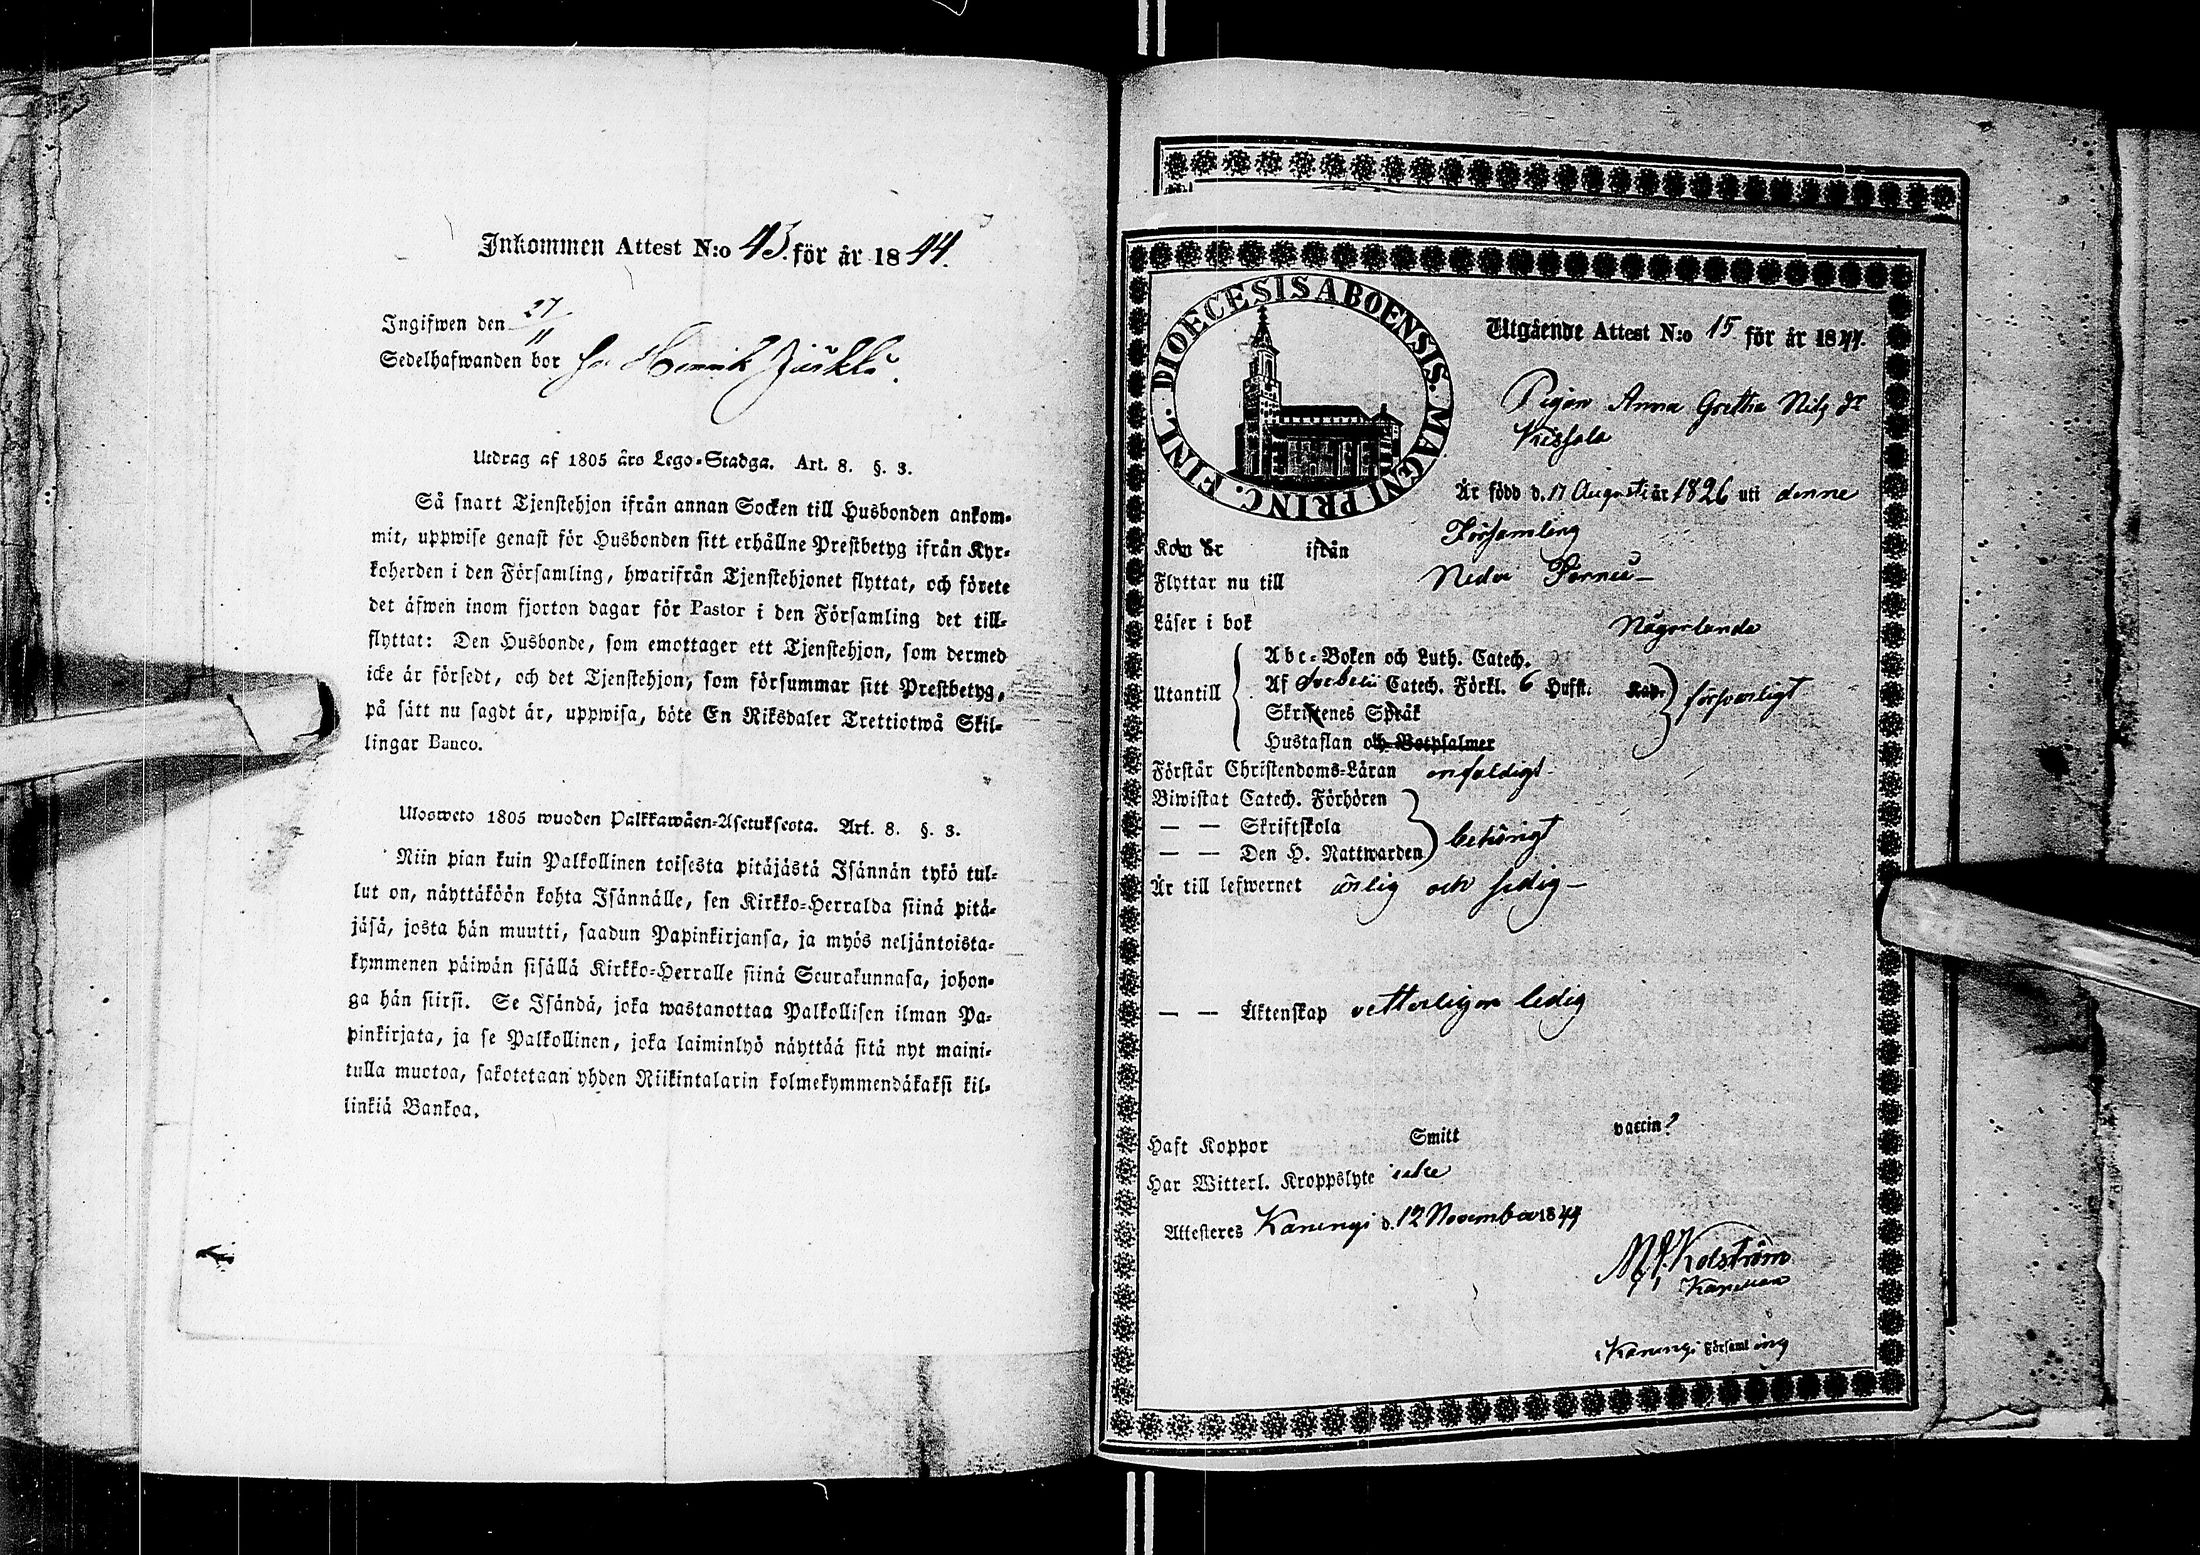 Inkommen Attest N:o 43. för år 1844.
Ingifwen den 27/11
Sedelhafwanden bor hos Henrik Jäskki.
Utdrag af 1805 års Lego-Stadga. Art. 8. §. 3.
Så snart Tjenstehjon ifrån annan Socken till Husbonden ankom-
mit, uppwise genast för Husbonden sitt erhållne Prestbetyg ifrån Kyr-
koherden i den Församling, hwarifrån Tjenstehjonet flyttat, och förete
det äfwen inom fjorton dagar för Pastor i den Församling det till-
flyttat: Den Husbonde, som emottager ett Tjenstehjon, som dermed
icke är försedt, och det Tjenstehjon, som försummar sitt Prestbetyg,
på sätt nu sagdt är, uppwisa, böte En Riksdaler Trettiotwå Skil-
lingar Banco.
Ulosweto 1805 wuoden Palkkawäen-Asetuksesta. Art. 8. §. 3.
Niin pian kuin Palkollinen toisesta pitäjästä Isännän tykö tul-
lut on, näyttäköön kohta Isännälle, sen Kirkko-Herralda siinä pitä-
jäsä, josta hän muutti, saadun Papinkirjansa, ja myös neljäntoista-
kymmenen päiwän sisällä Kirkko-Herralle siinä Seurakunnasa, johon-
ga hän siirsi. Se Isändä, joka wastanottaa Palkollisen ilman Pa-
pinkirjata, ja se Palkollinen, joka laiminlyö näyttää sitä nyt maini-
tulla muotoa, sakotetaan yhden Riikintalarin kolmekymmendäkaksi kil-
linkiä Bankoa.
DIOECESIS ABOENSIS. MAGNI PRINC. FINL.
Utgående Attest N:o 15 för år 1844.
Pigan Anna Gretha Nils dr
Krissala
Är född d. 17 Augusti år 1826 uti denne
Församling
Kom år ifrån
Flyttar nu till Neder Torneå
Läser i bok Någorlunda
Abc-Boken och Luth. Catech.
Utantill Af Svebelii Catech. Förkl. 6 Hufst. Kap. försvarligt
Skriftenes Språk
Hustaflan och Botpsalmer
Förstår Christendoms-Läran enfaldigt
Biwistat Catech. Förhören
— — Skriftskola behörigt
— — Den H. Nattwarden
Är till lefwernet ärlig och sedig
— — Äktenskap vetterligen ledig
Haft Koppor Smitt vaccin?
Har Witterl. Kroppslyte icke
Attesteres Karungi d. 12 November 1844
Kolström
Kapellan
i Karungi Församling